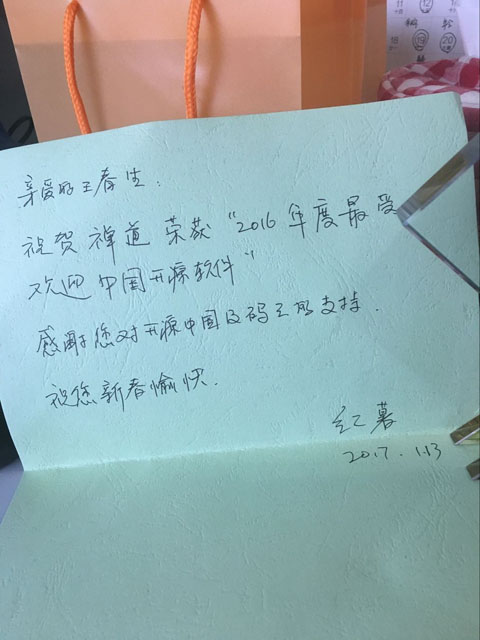 亲爱的王春生：
祝贺禅道荣获“2016年度最受
欢迎中国开源软件”
感谢您对开源中国及码云的支持.
祝您新春愉快.
红薯
2017.1.13